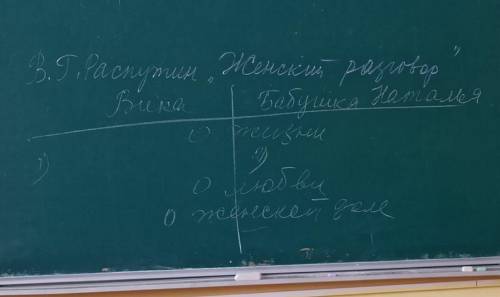 В.Г. Распутин „Женский разговор"
Вика Бабушка Наталья
о жизни
1) 1)
о любви
о женской доле